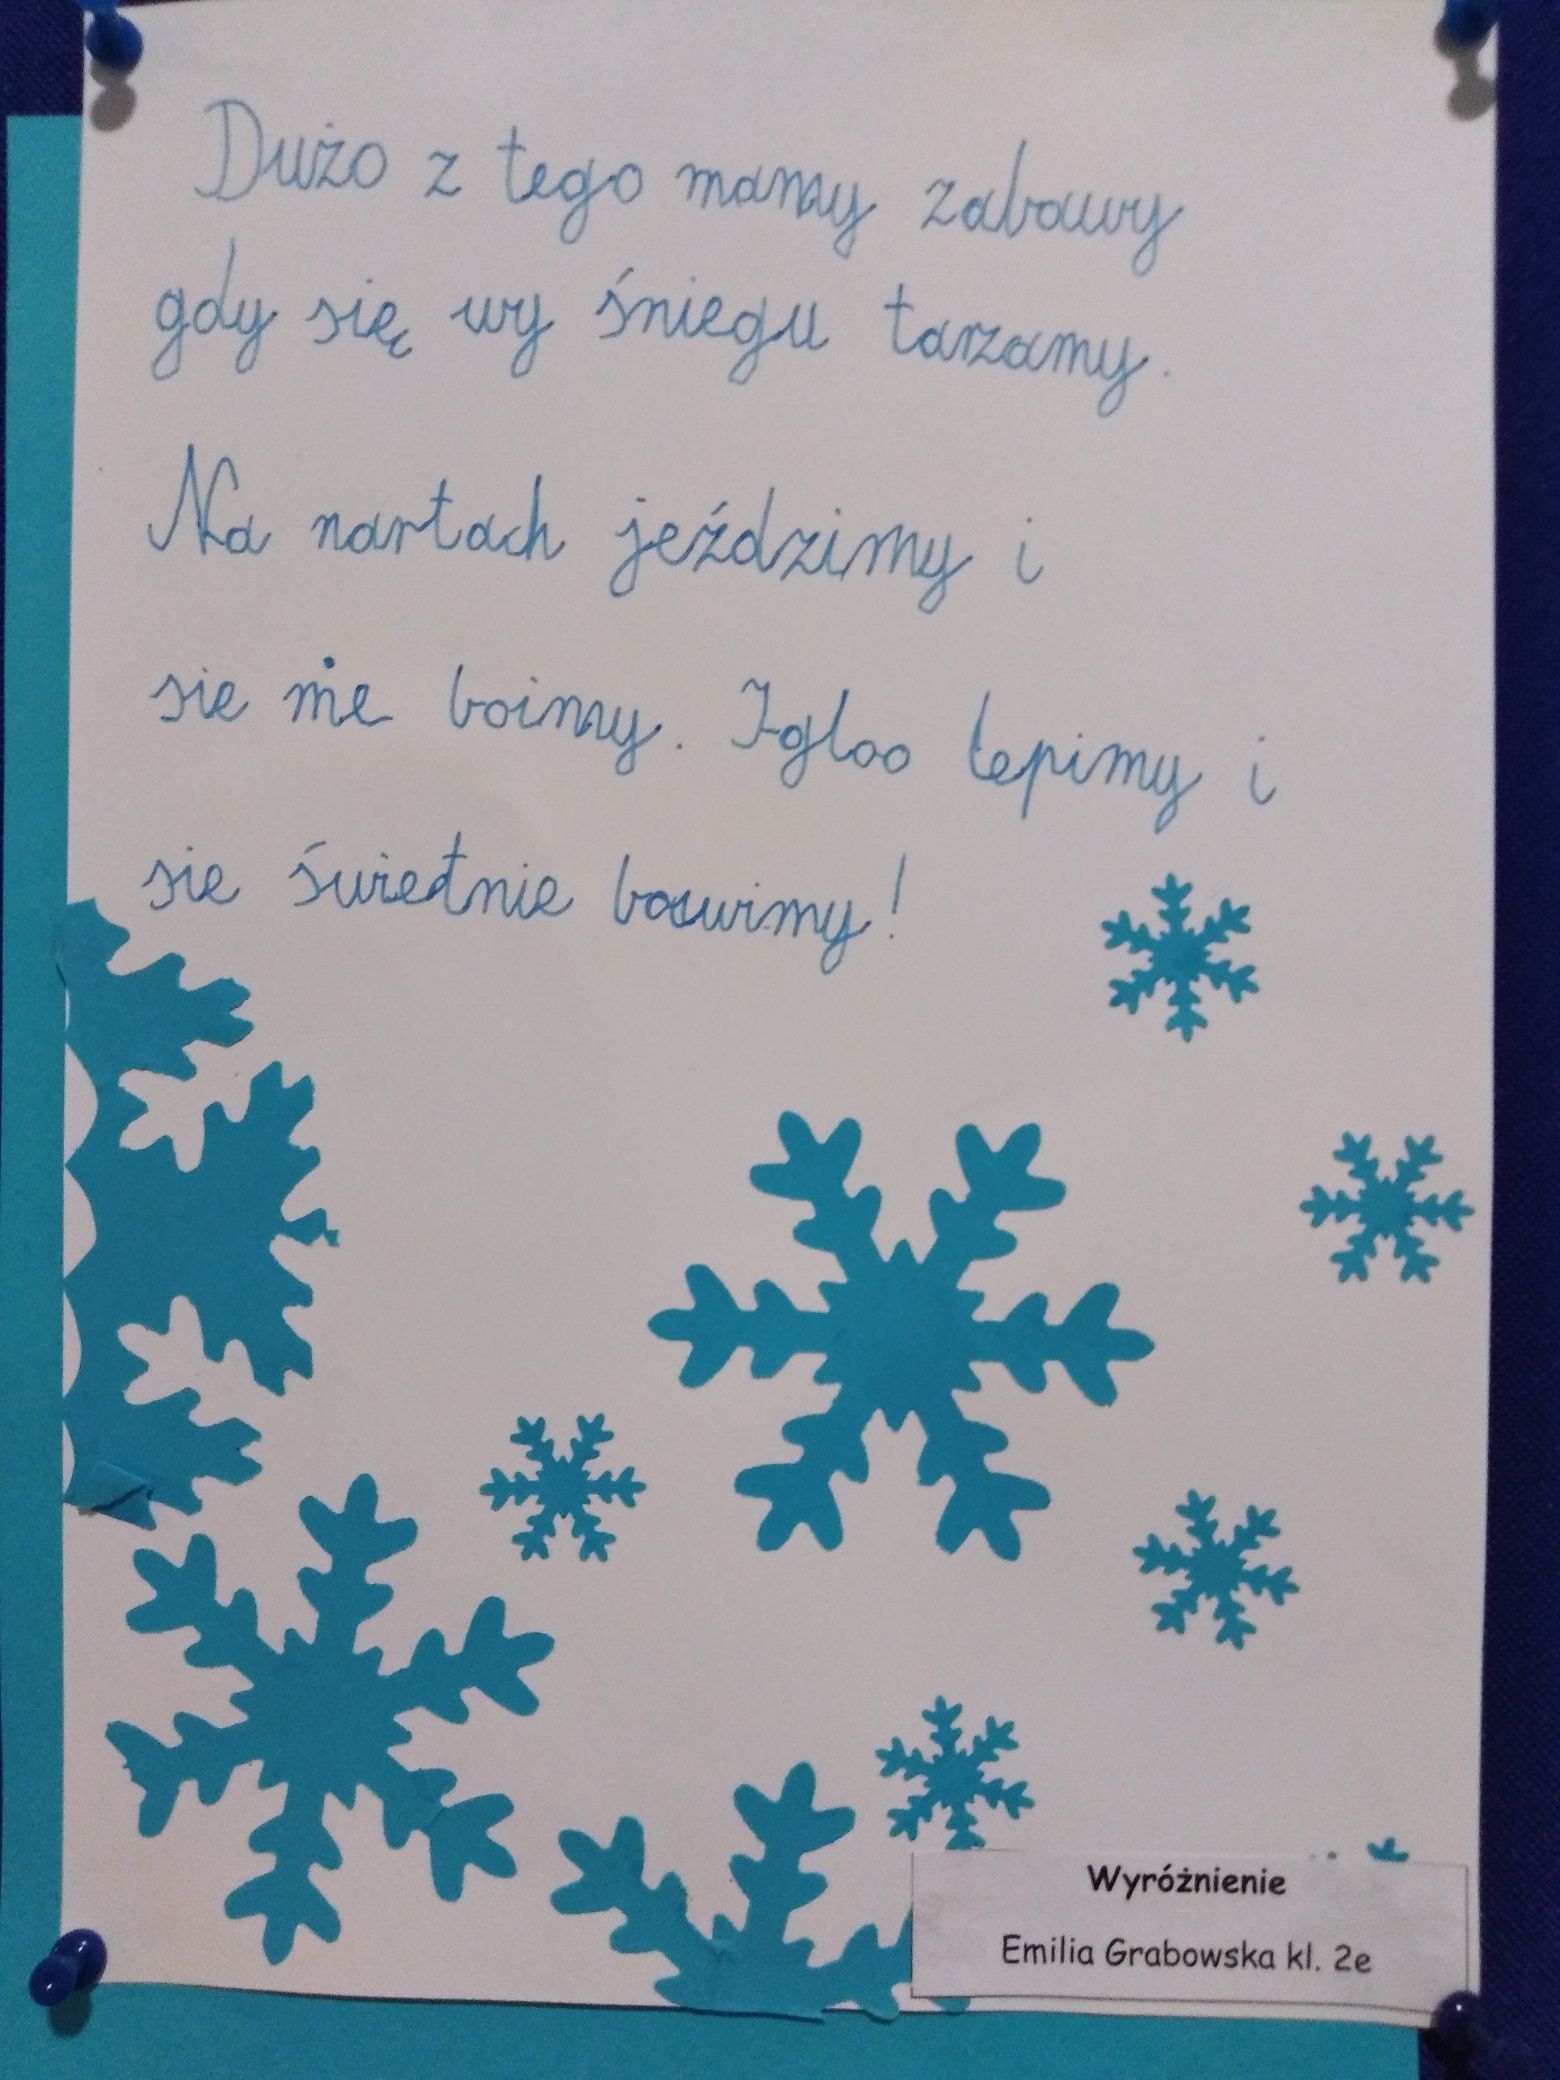 Dużo z tego mamy zabawy
gdy się wy śniegu tarzamy.
Na nartach jeździmy i
sie nie boimy. Igloo lepimy i
sie świetnie bawimy!
Wyróżnienie
Emilia Grabowska kl. 2e